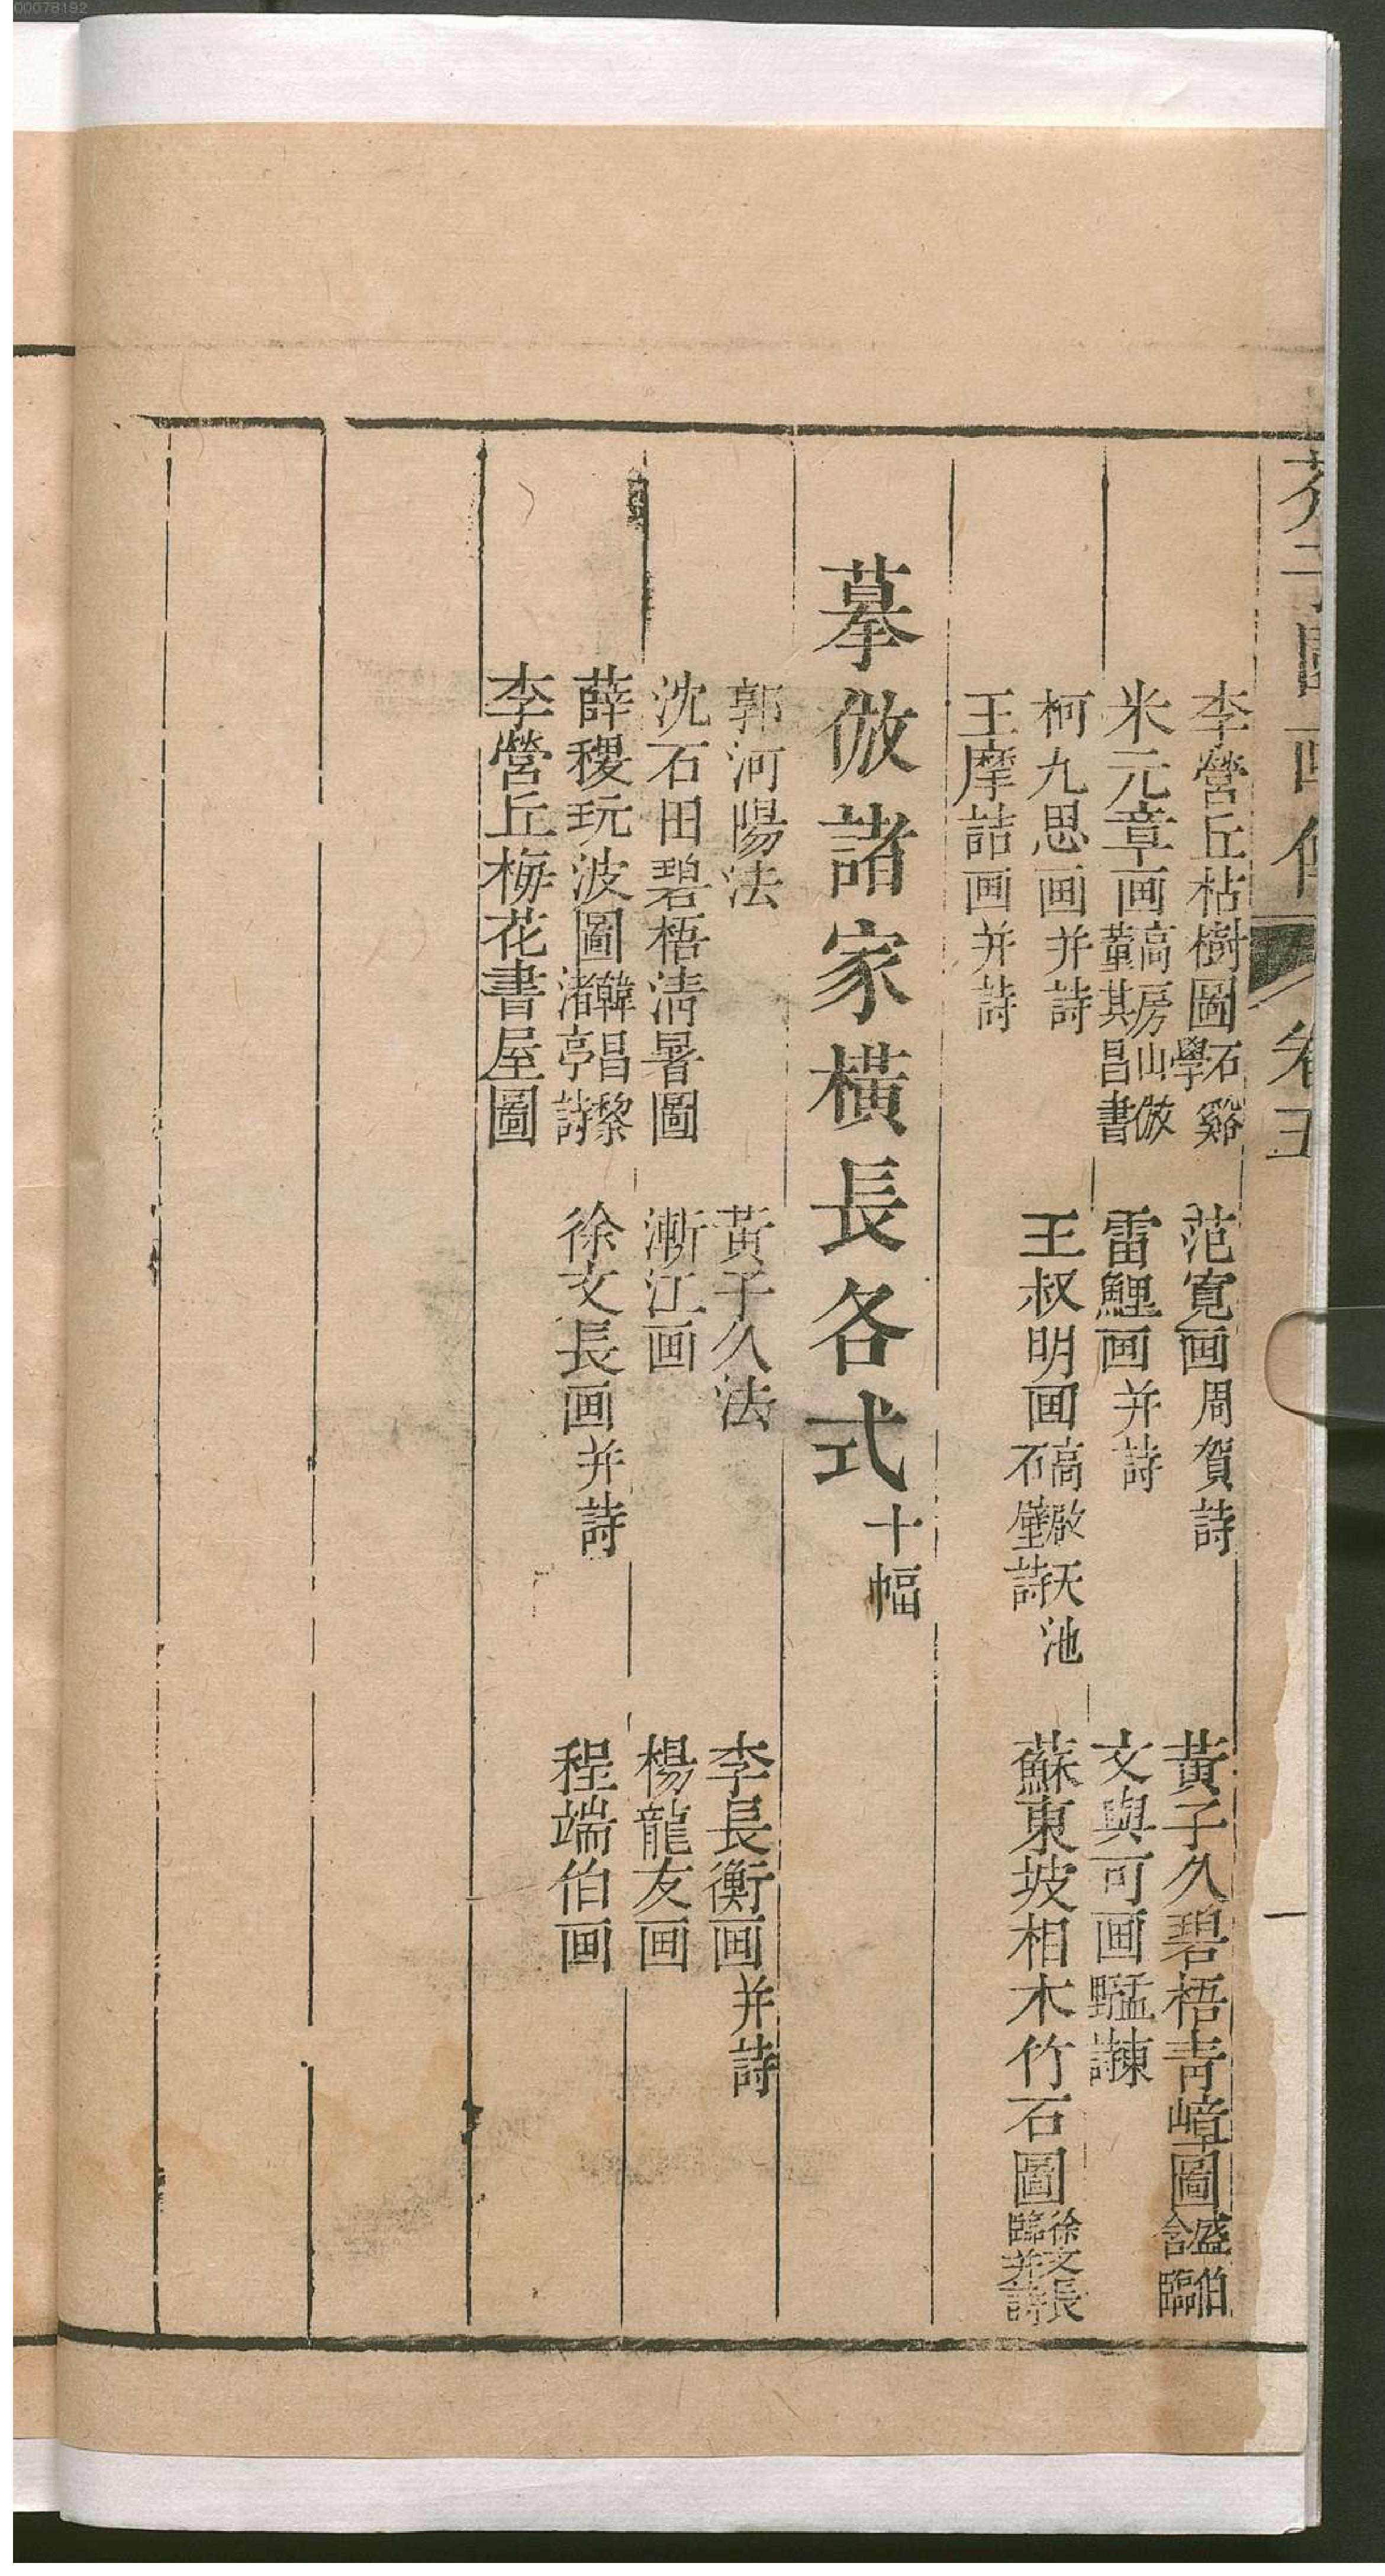 00078192
芥子園画傳 卷五 一
李營丘枯樹圖 石谿學 范寬画 周賀詩 黃子久碧梧青嶂圖 盛伯含臨
米元章画 高房山倣 董其昌書 雷鯉画并詩 文與可画 孟東野詩
柯九思画并詩 王叔明画 高啟天池石壁詩 蘇東坡相木竹石圖 徐文長臨并詩
王摩詰画并詩
摹倣諸家橫長各式 十幅
郭河陽法 黃子久法 李長衡画并詩
沈石田碧梧清暑圖 漸江画 楊龍友画
薛稷玩波圖 韓昌黎渚亭詩 徐文長画并詩 程端伯画
李營丘梅花書屋圖